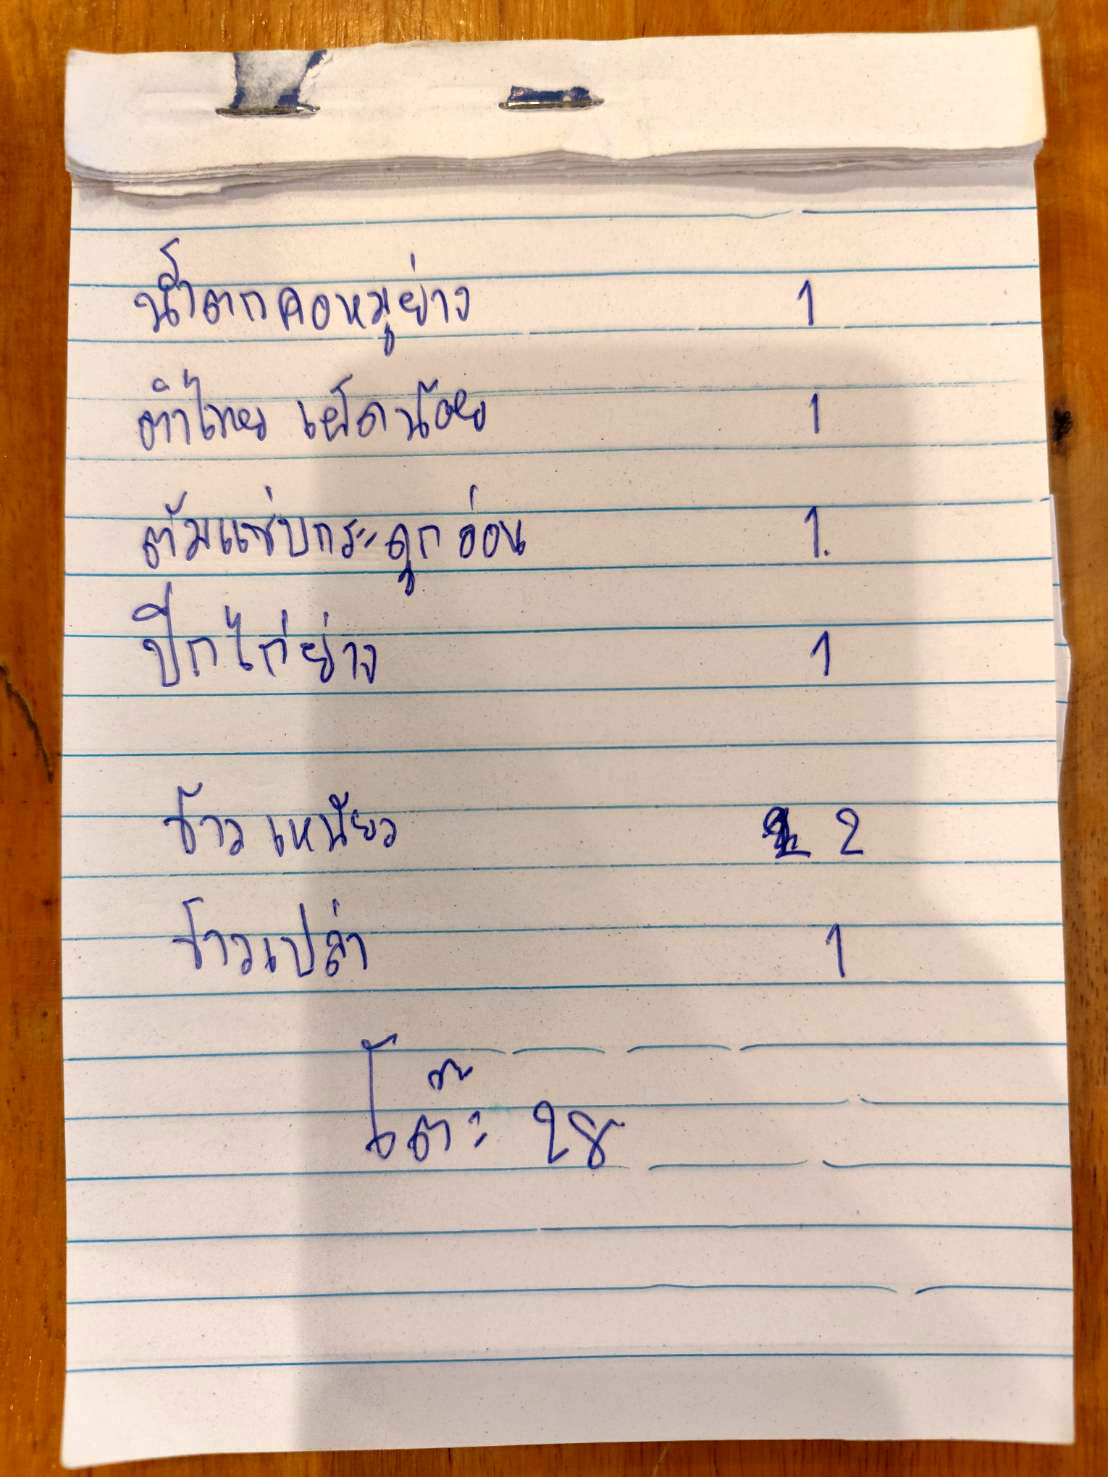 น้ำตกคอหมูย่าง 1
ตำไทย เผ็ดน้อย 1
ต้มแซ่บกระดูกอ่อน 1.
ปีกไก่ย่าง 1
ข้าวเหนียว 2
ข้าวเปล่า 1
โต๊ะ 28